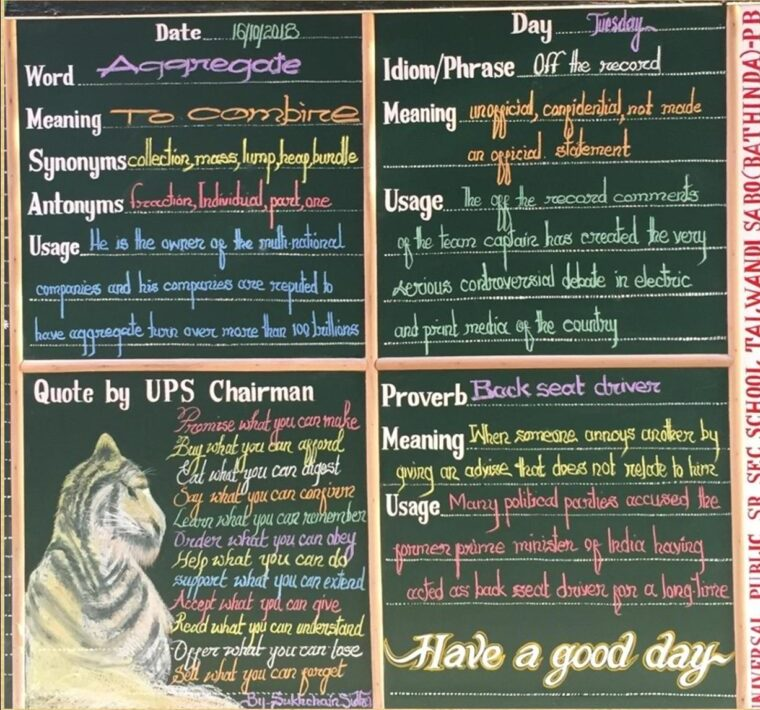 Date 16/10/2018
Word Aggregate
Meaning To combine
Synonyms collection, mass, lump, heap, bundle
Antonyms fraction, Individual, part, one
Usage He is the owner of the multi-national
companies and his companies are reputed to
have aggregate turn over more than 100 billions
Day Tuesday
Idiom/Phrase Off the record
Meaning unofficial, confidential, not made
an official. statement
Usage The off the record comments
of the team captain has created the very
serious controversial debate in electric
and print media of the country
Quote by UPS Chairman
Promise what you can make
Buy what you can afford
Eat what you can digest
Say what you can confirm
Learn what you can remember
Order what you can obey
Help what you can do
support what you can extend
Accept what you can give
Read what you can understand
Offer what you can lose
Sell what you can forget
By Sukhchain
Proverb Back seat driver
Meaning When someone annoys another by
giving an advise that does not relate to him
Usage Many political parties accused the
former prime minister of India having
acted as back seat driver for a long-time
Have a good day
UNIVERSAL PUBLIC SR. SEC. SCHOOL TALWANDI SABO(BATHINDA)-PB